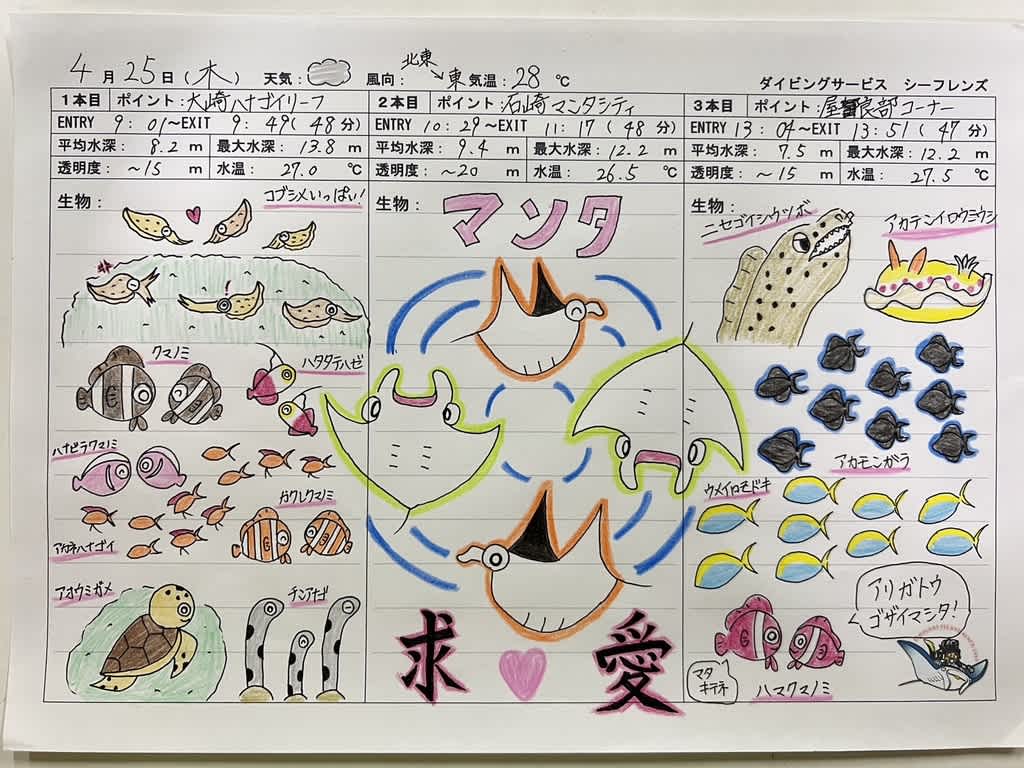 4月25日(木) 天気: 風向:北東→東 気温:28℃
ダイビングサービス シーフレンズ
1本目 ポイント:大崎ハナゴイリーフ
ENTRY 9:01~EXIT 9:49(48分)
平均水深:8.2m 最大水深:13.8m
透明度:~15m 水温:27.0℃
生物:
コブシメいっぱい!
クマノミ
ハタタテハゼ
ハナビラクマノミ
カクレクマノミ
アカネハナゴイ
アオウミガメ
チンアナゴ
2本目 ポイント:石崎マンタシティ
ENTRY 10:29~EXIT 11:17(48分)
平均水深:9.4m 最大水深:12.2m
透明度:~20m 水温:26.5℃
生物:
マンタ
求愛
3本目 ポイント:屋良部コーナー
ENTRY 13:04~EXIT 13:51(47分)
平均水深:7.5m 最大水深:12.2m
透明度:~15m 水温:27.5℃
生物:
ニセゴイシウツボ
アカテンイロウミウシ
アカモンガラ
ウメイロモドキ
アリガトウ
ゴザイマシタ!
マタ
キテネ
ハマクマノミ